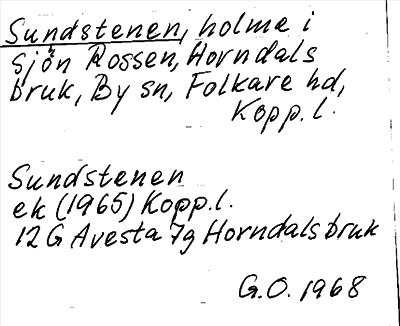 Sundstenen, holme i
sjön Rossen, Horndals
bruk, By sn, Folkare hd,
Kopp. l.
Sundstenen
ek (1965) Kopp.l.
12 G Avesta 7g Horndals bruk
G.O. 1968